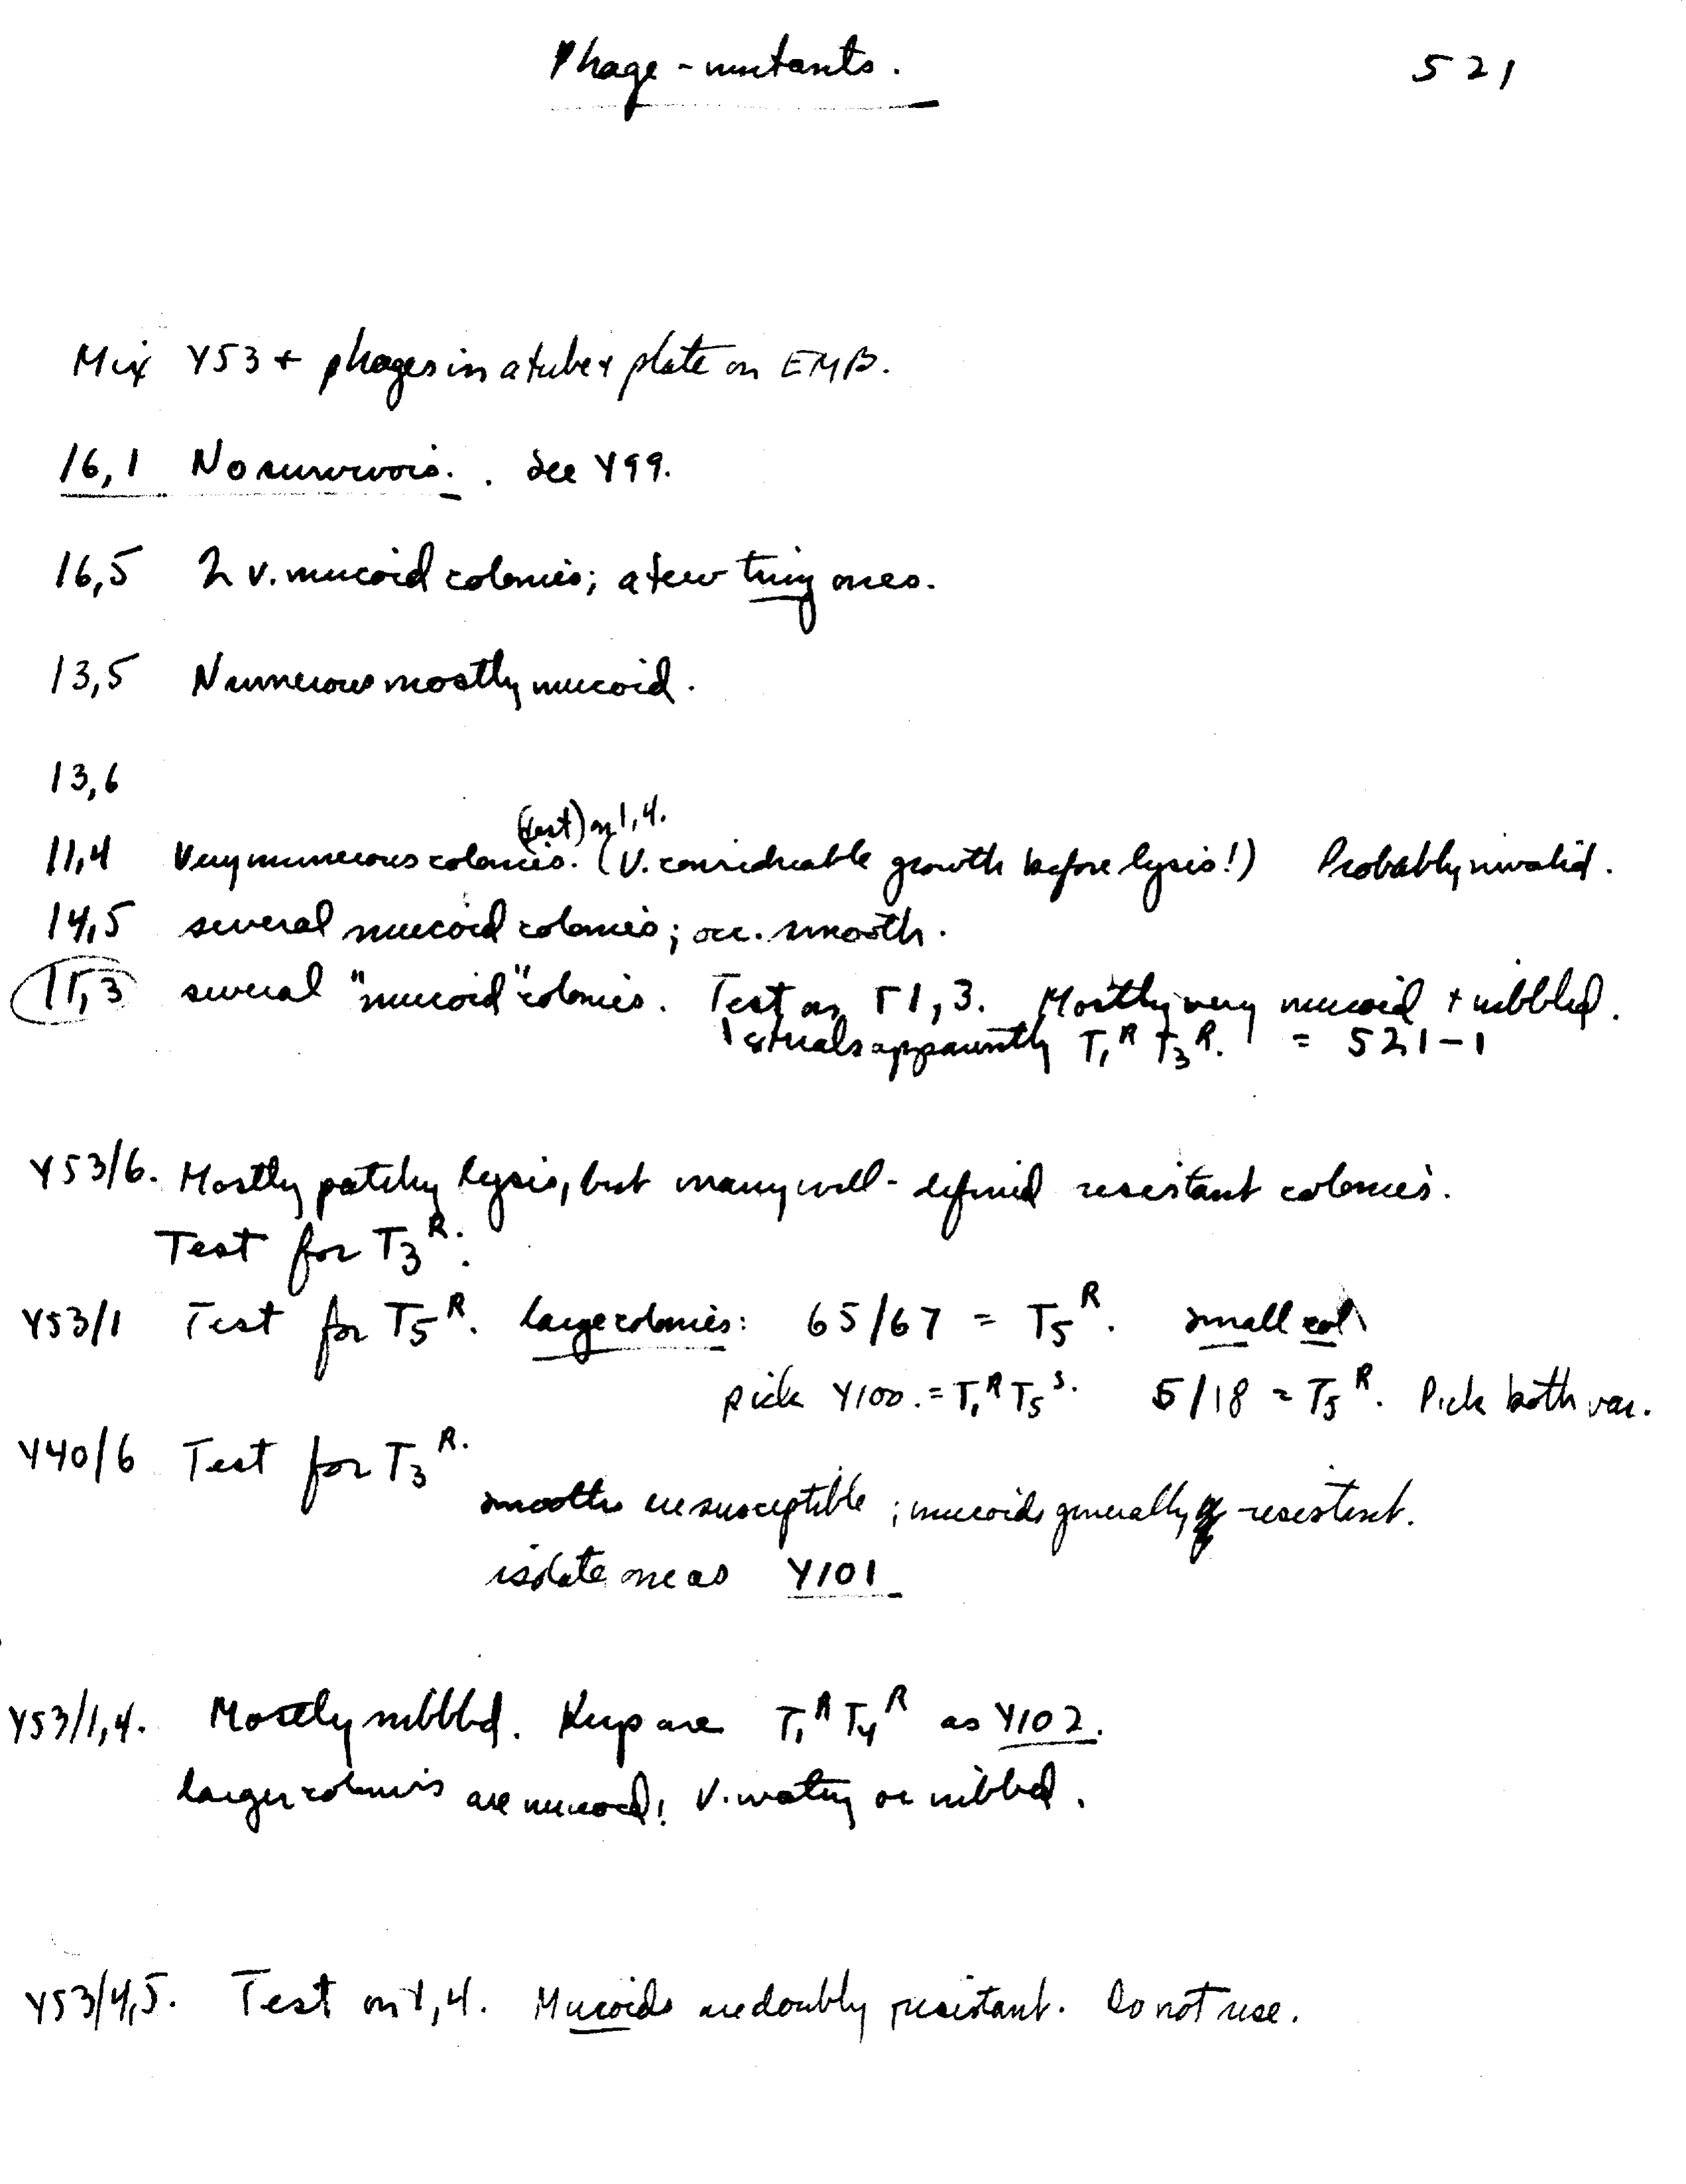 Phage-mutants. 521
Mix Y53 + phages in a tube & plate on EMB.
16,1 No survivors. . See Y99.
16,5 2 v. mucoid colonies; a few tiny ones.
13,5 Numerous mostly mucoid.
13,6
(test) on 1,4.
11,4 Very numerous colonies. (V. considerable growth before lysis!) Probably invalid.
14,5 several mucoid colonies; occ. smooth.
11,3 several "mucoid" colonies. Test on T1,3. Mostly very mucoid + nibbled.
apparently T1R T3R. = 521-1
Y53/6. Mostly patchy lysis, but many well-defined resistant colonies.
Test for T3R.
Y53/1 Test for T5R. Large colonies: 65/67 = T5R. small col
pick Y100. = T1R T5s. 5/18 = T5R. Pick both var.
Y40/6 Test for T3R.
smooths are susceptible; mucoids generally resistant.
isolate one as Y101
Y53/1,4. Mostly nibbled. Keep one T1R T4R as Y102.
Larger colonies are mucoid! V. watery or nibbled.
Y53/4,5. Test on 1,4. Mucoids are doubly resistant. Do not use.